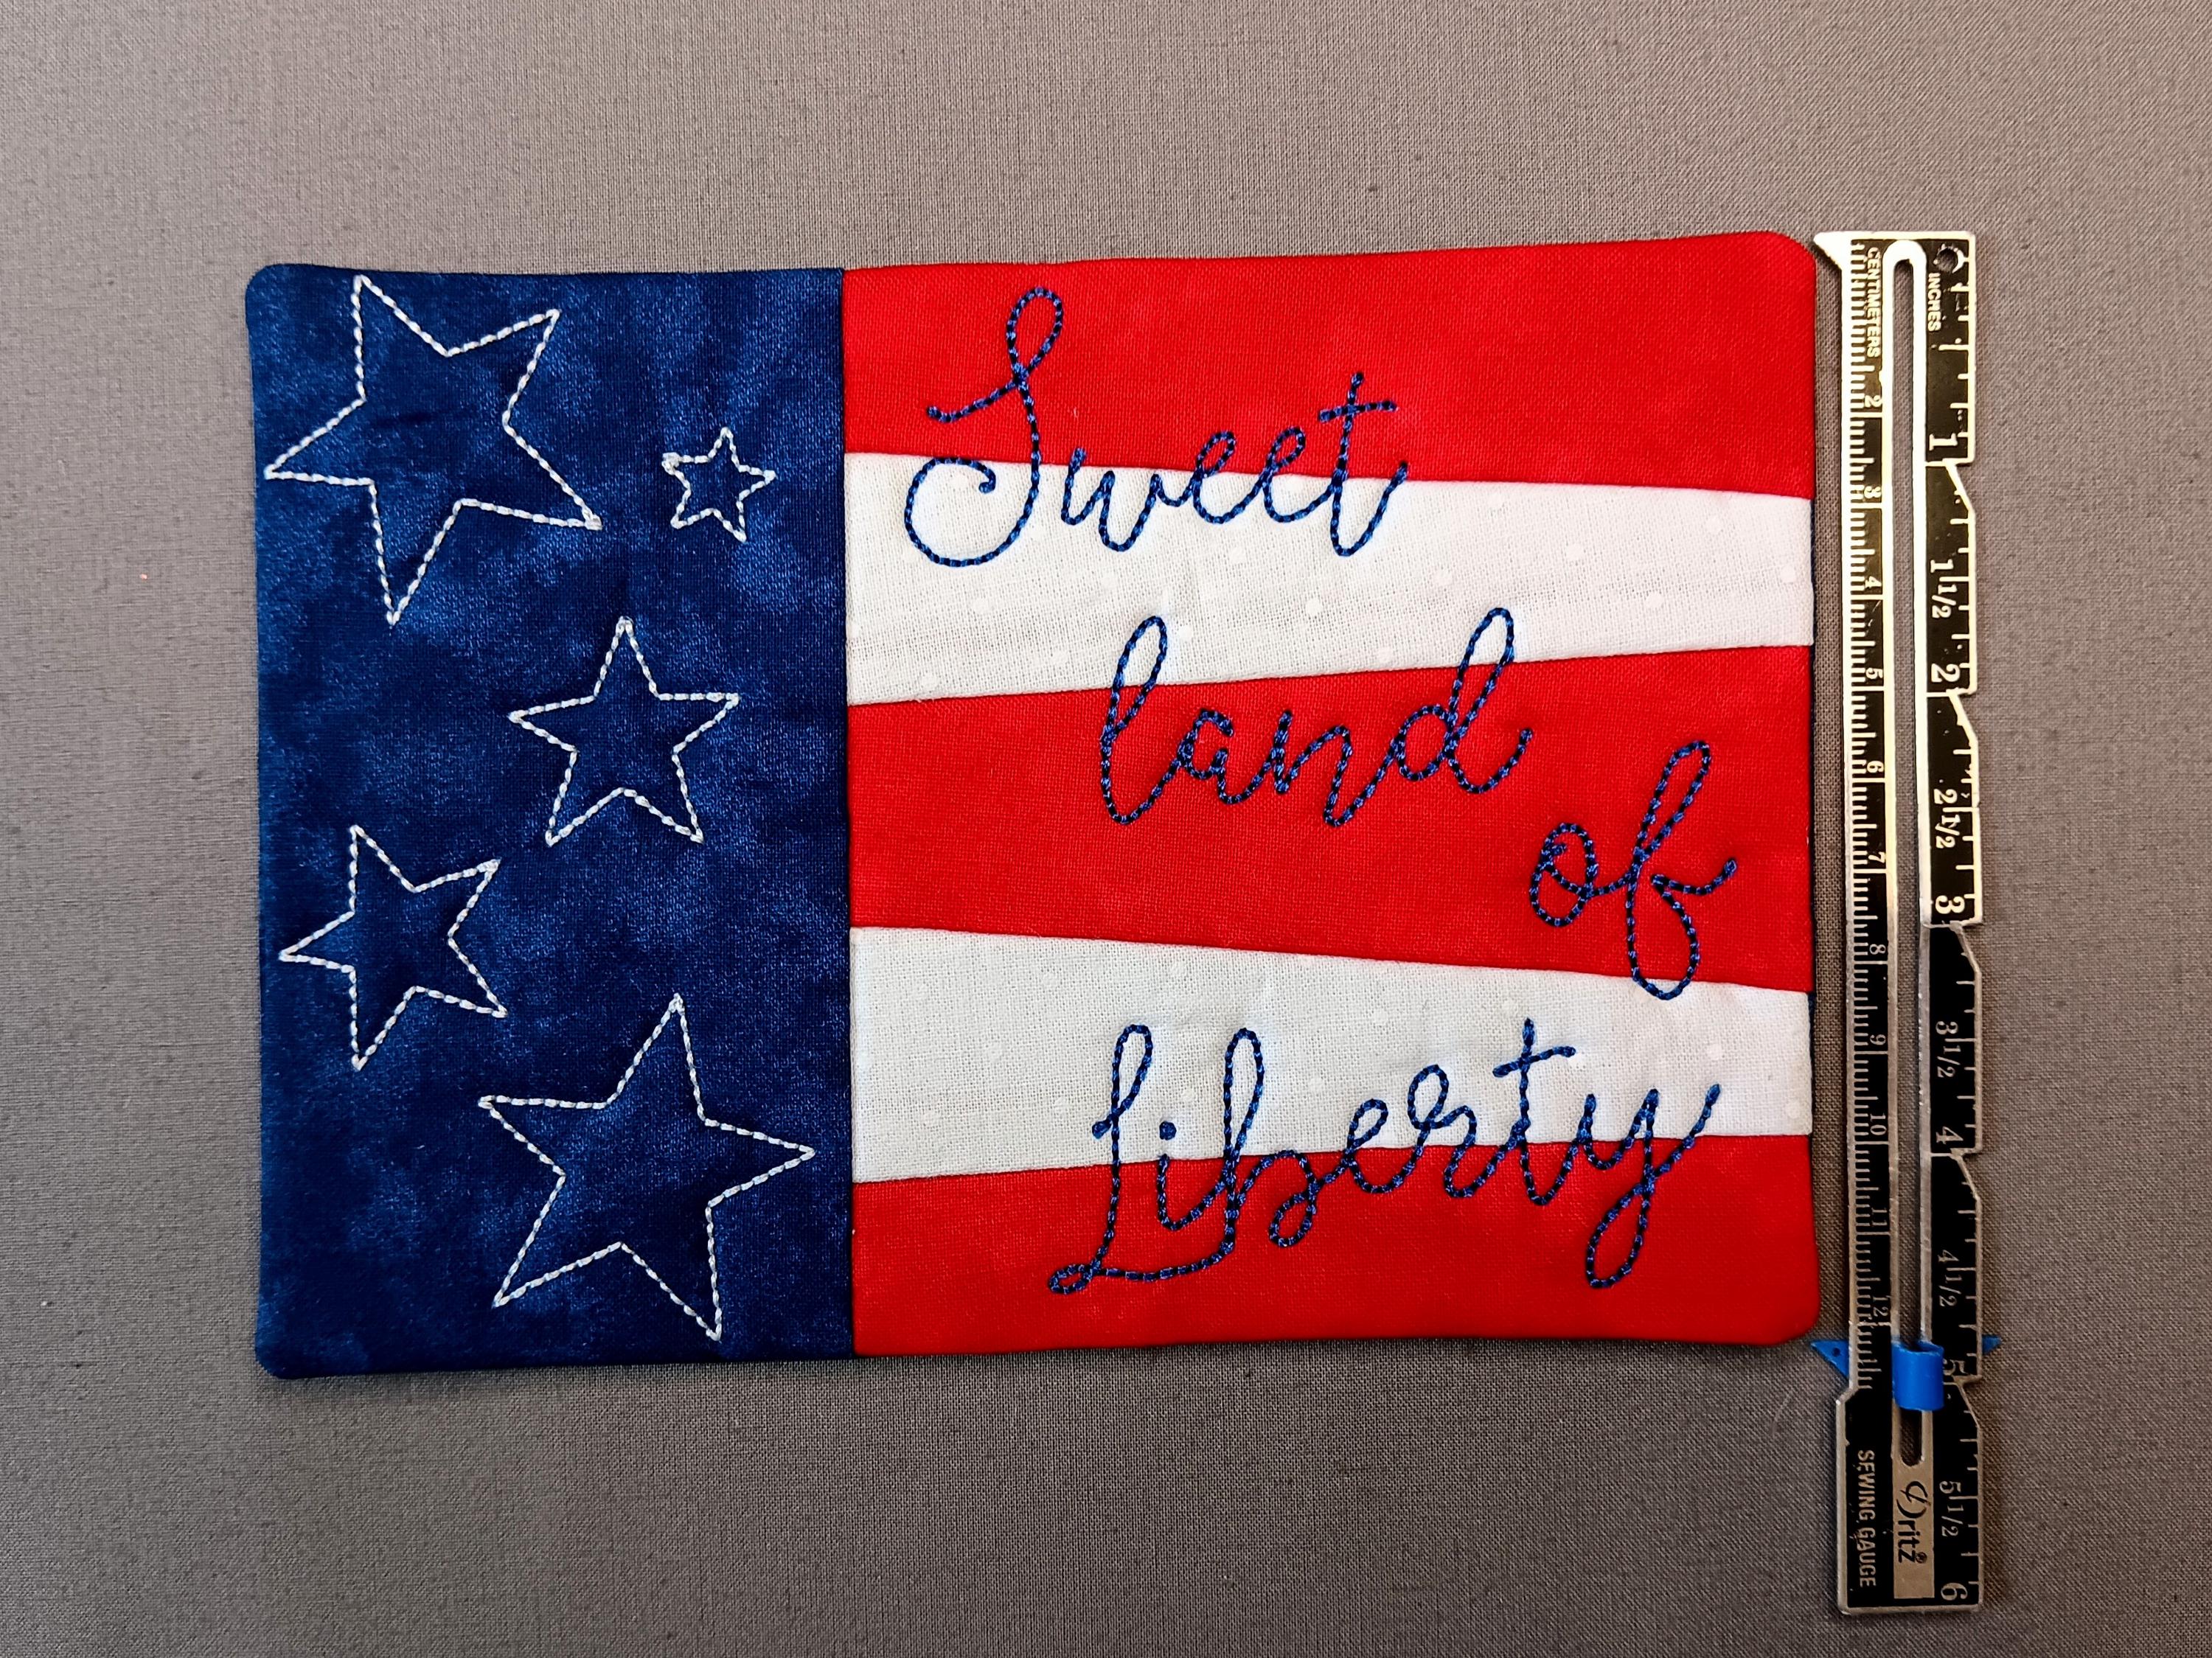 Sweet
land
of
Liberty
CENTIMETERS 2 3 4 5 6 7 8 9 10 11 12 SEWING GAUGE
INCHES 1 1 1/2 2 2 1/2 3 3 1/2 4 4 1/2 5 5 1/2 6
Dritz®